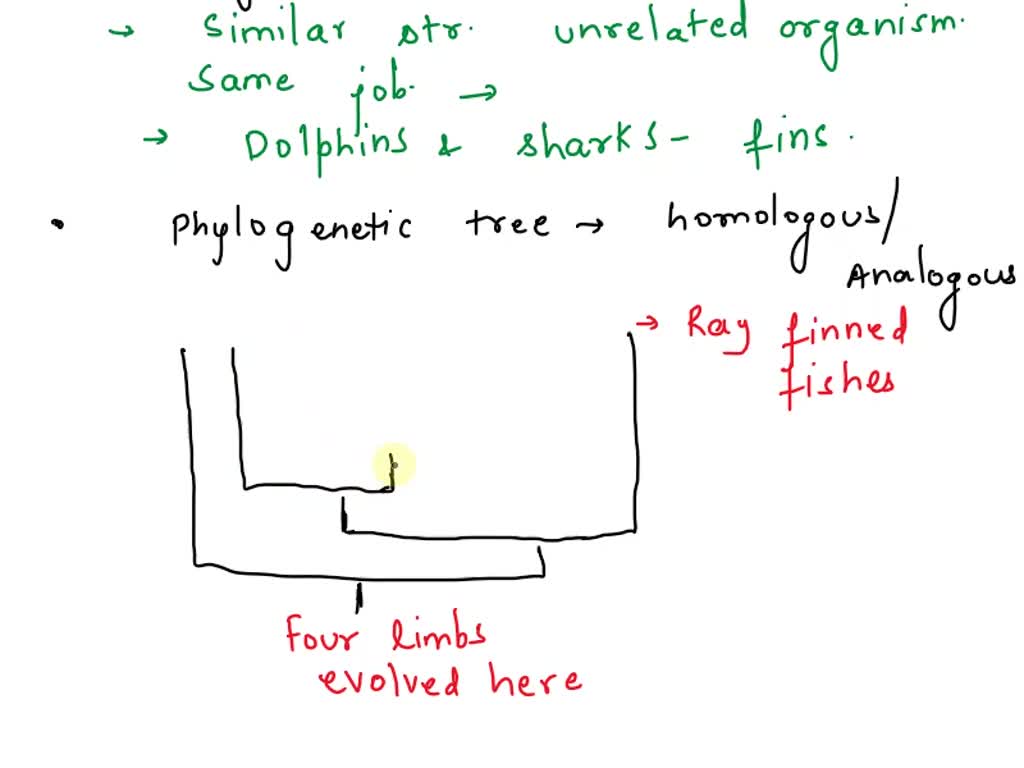 → Similar str. unrelated organism.
same job. →
→ Dolphins & sharks - fins.
• Phylogenetic tree → homologous/
Analogous
→ Ray finned
fishes
Four limbs
evolved here